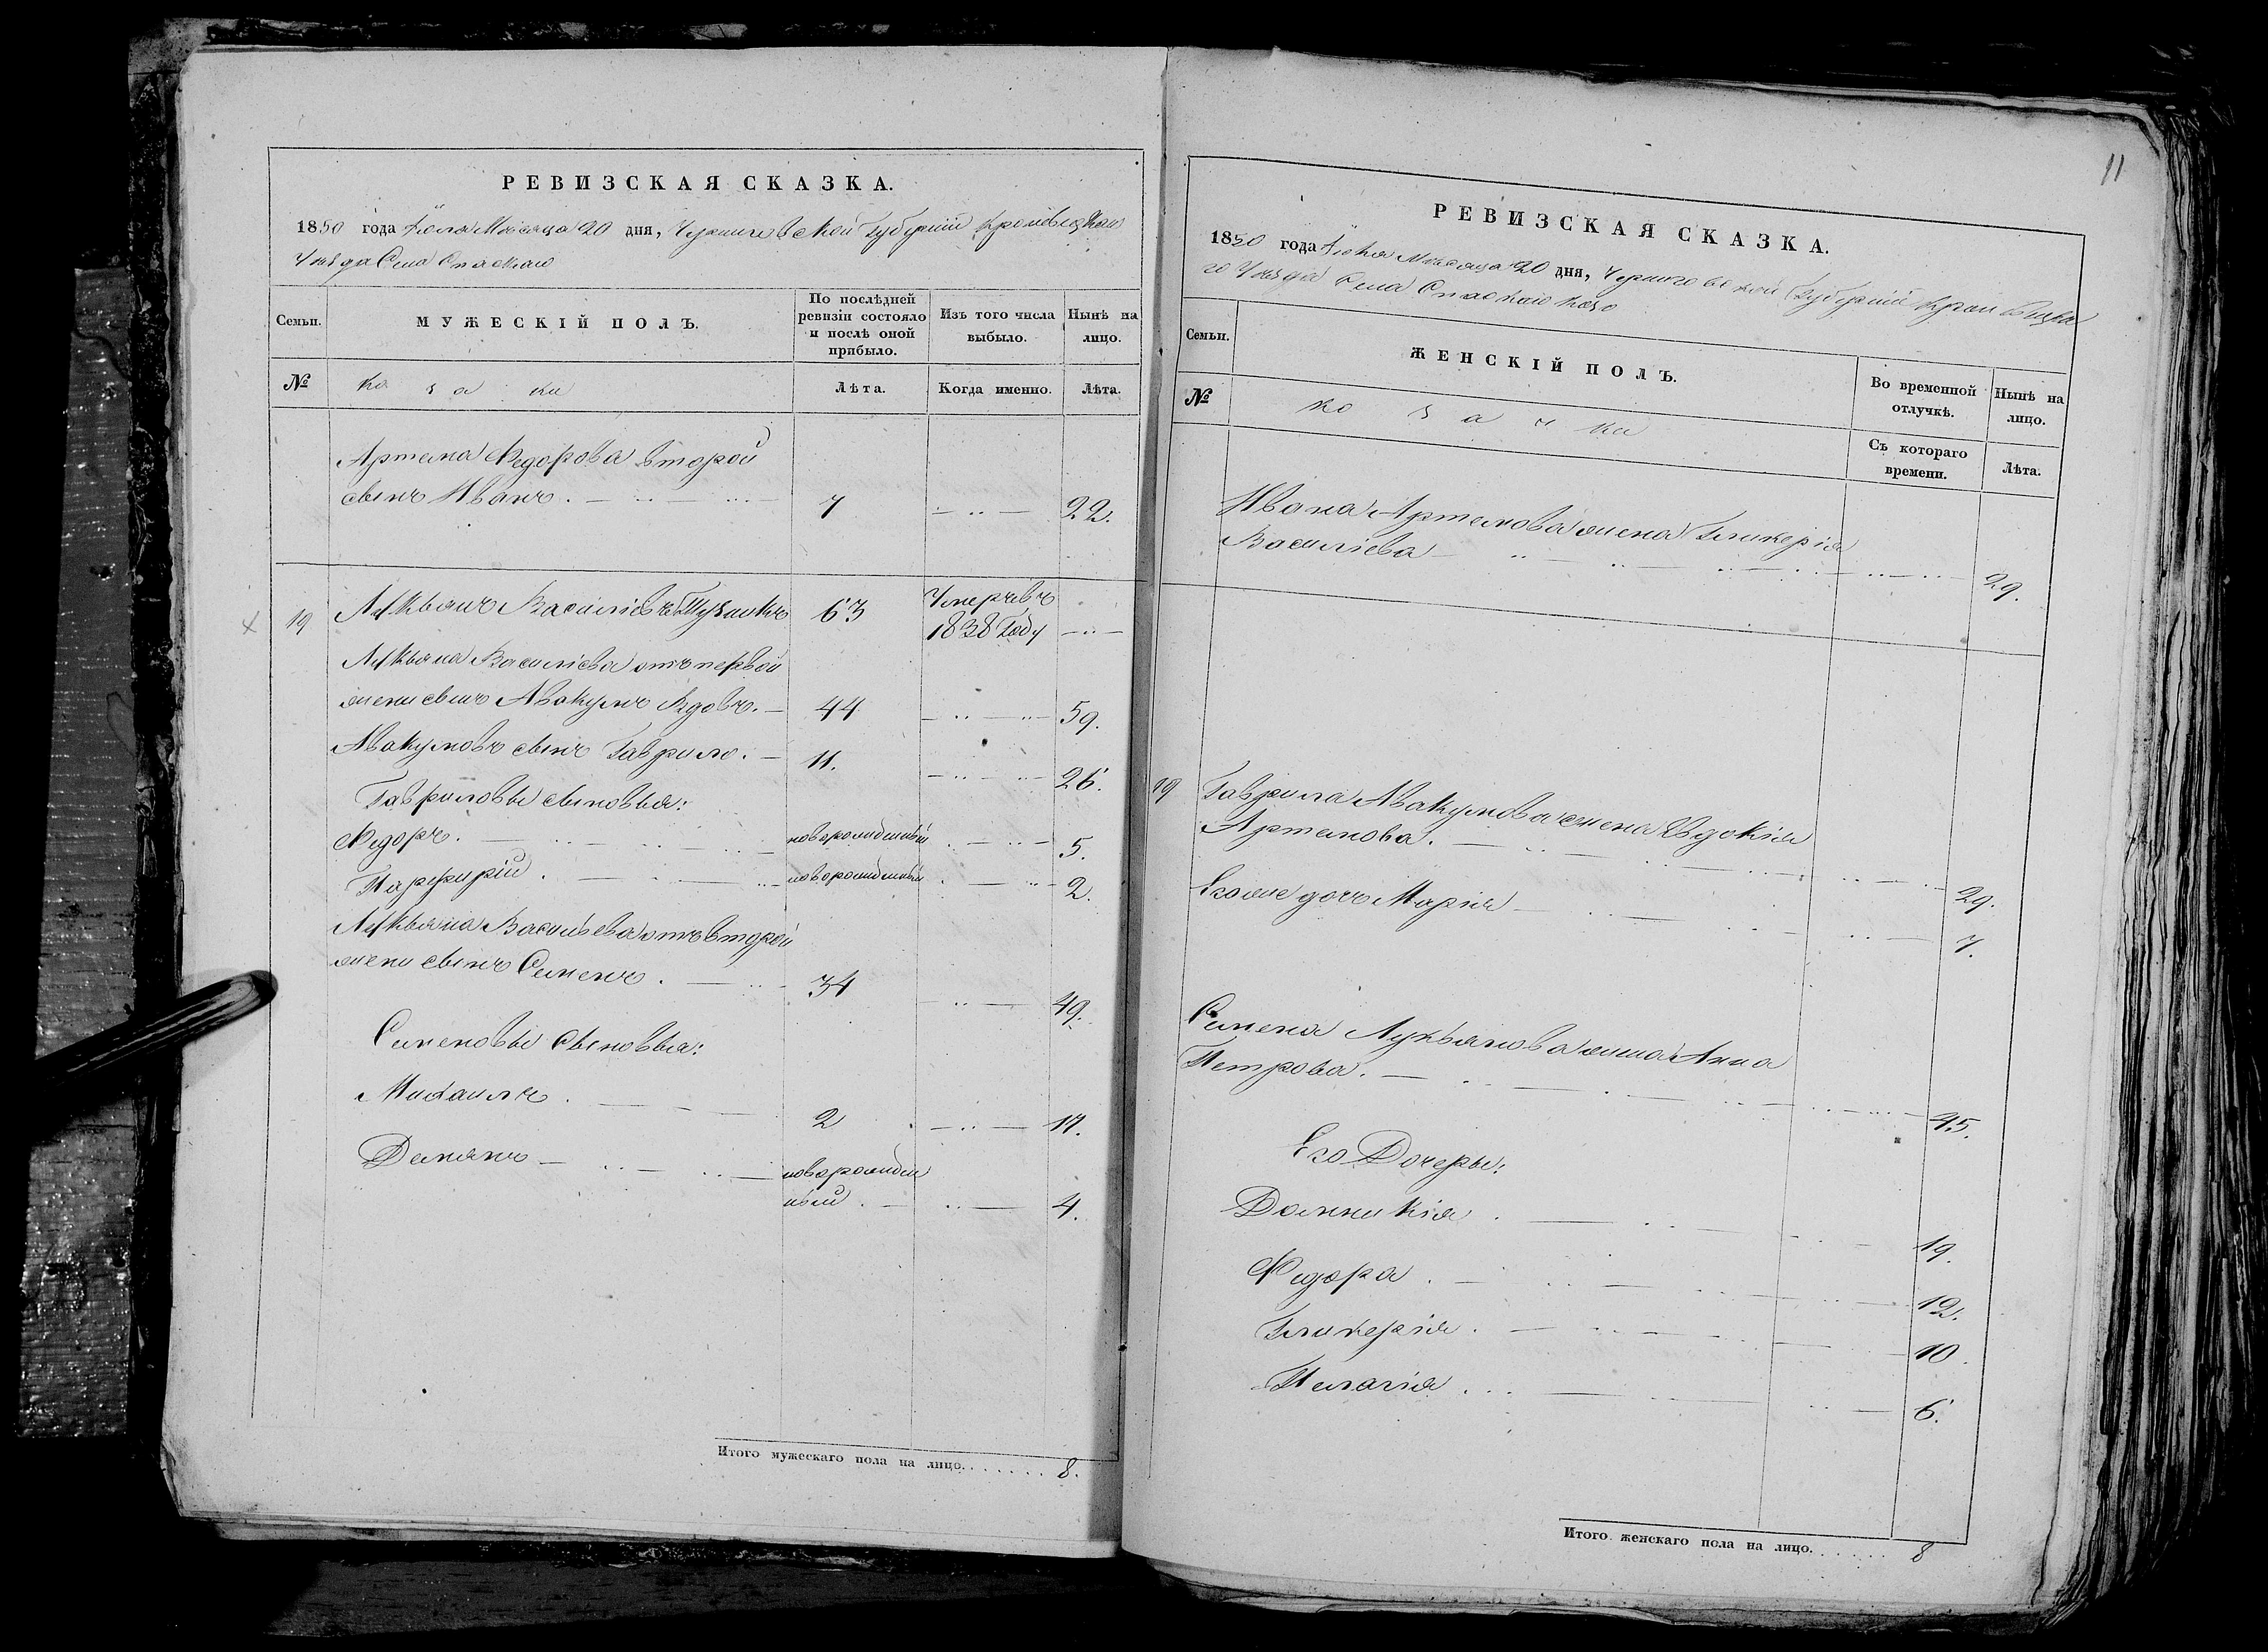 РЕВИЗСКАЯ СКАЗКА.
1850 года Іюля Месяца 20 дня, Черниговской Губерніи Кролевецкаго
Уезда Села Спаскаго
Семьи.
МУЖЕСКІЙ ПОЛЪ.
По послѣдней ревизіи состояло и послѣ оной прибыло.
Изъ того числа выбыло.
Нынѣ на лицо.
№
козаки
Лѣта.
Когда именно.
Лѣта.
Артема Федорова второй
сынъ Иванъ. 7 22.
19 Лукьянъ Васильевъ 63 Умеръ въ
1838 году
Лукьяна Васильева отъ первой
жены сынъ Авакумъ вдовъ. 44 59.
Авакумовъ сынъ Гаврило. 11. 26.
Гавриловы сыновья:
Федоръ. новорожденный 5.
Парфирій. новорожденный 2.
Лукьяна Васильева отъ второй
жены сынъ Сименъ. 34 49.
Сименовы сыновья:
Михаилъ. 2 17.
Демянъ новорожден
ный. 4.
Итого мужескаго пола на лицо....... 8.
11
РЕВИЗСКАЯ СКАЗКА.
1850 года Іюля Месяца 20 дня, Черниговской Губерніи Кролевецка
го Уезда Села Спаскаго
Семьи.
ЖЕНСКІЙ ПОЛЪ.
Во временной отлучкѣ.
Нынѣ на лицо.
№
козачки
Съ котораго времени.
Лѣта.
Ивана Артемова жена Гликерія
Василіева 29.
19 Гаврила Авакумова жена Евдокія
Артемова. 29.
Егоже дочь Марія 7.
Симена Лукьянова жена Анна
Петрова. 45.
Его Дочеры:
Домникія. 19.
Федора. 12.
Гликерія. 10.
Пелагія. 6.
Итого женскаго пола на лицо...... 8